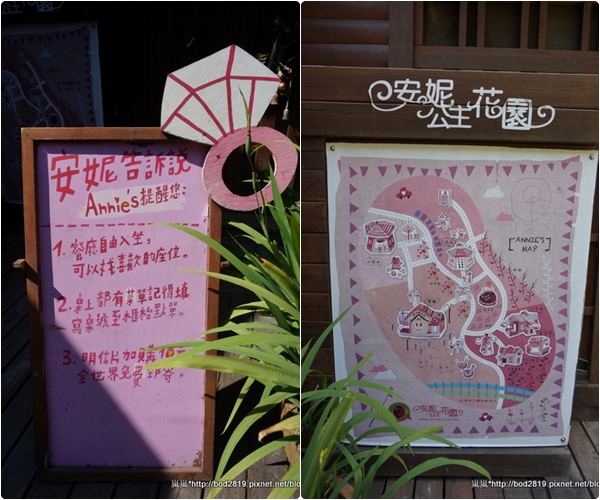 安妮告訴說
Annie's提醒您:
1. 餐廳自由入坐,
可以找喜歡的座位。
2. 桌上都有菜單記得填
寫桌號至櫃枱點單。
3. 明信片加購10元
全世界免費郵寄
嵐嵐*http://bod2819.pixnet.net/blo
安妮
公主花園
[ANNIE'S
MAP]
安妮公主花園
嵐嵐*http://bod2819.pixnet.net/blo